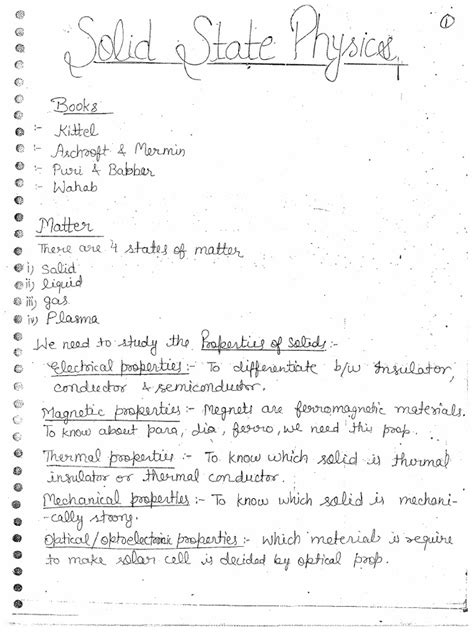 Solid State Physics
1
Books
:- Kittel
:- Aschroft & Mermin
:- Puri & Babber
:- Wahab
Matter
There are 4 states of matter
i) Solid
ii) liquid
iii) gas
iv) Plasma
We need to study the Properties of Solids :-
Electrical properties :- To differentiate b/w Insulator,
conductor & semiconductor.
Magnetic properties :- Megnets are ferromagnetic materials.
To know about para, dia, ferro, we need this prop.
Thermal properties :- To know which solid is thermal
insulator or thermal conductor.
Mechanical properties :- To know which solid is mechani-
cally strong.
Optical/optoelectronic properties :- which material is require
to make solar cell is decided by optical prop.